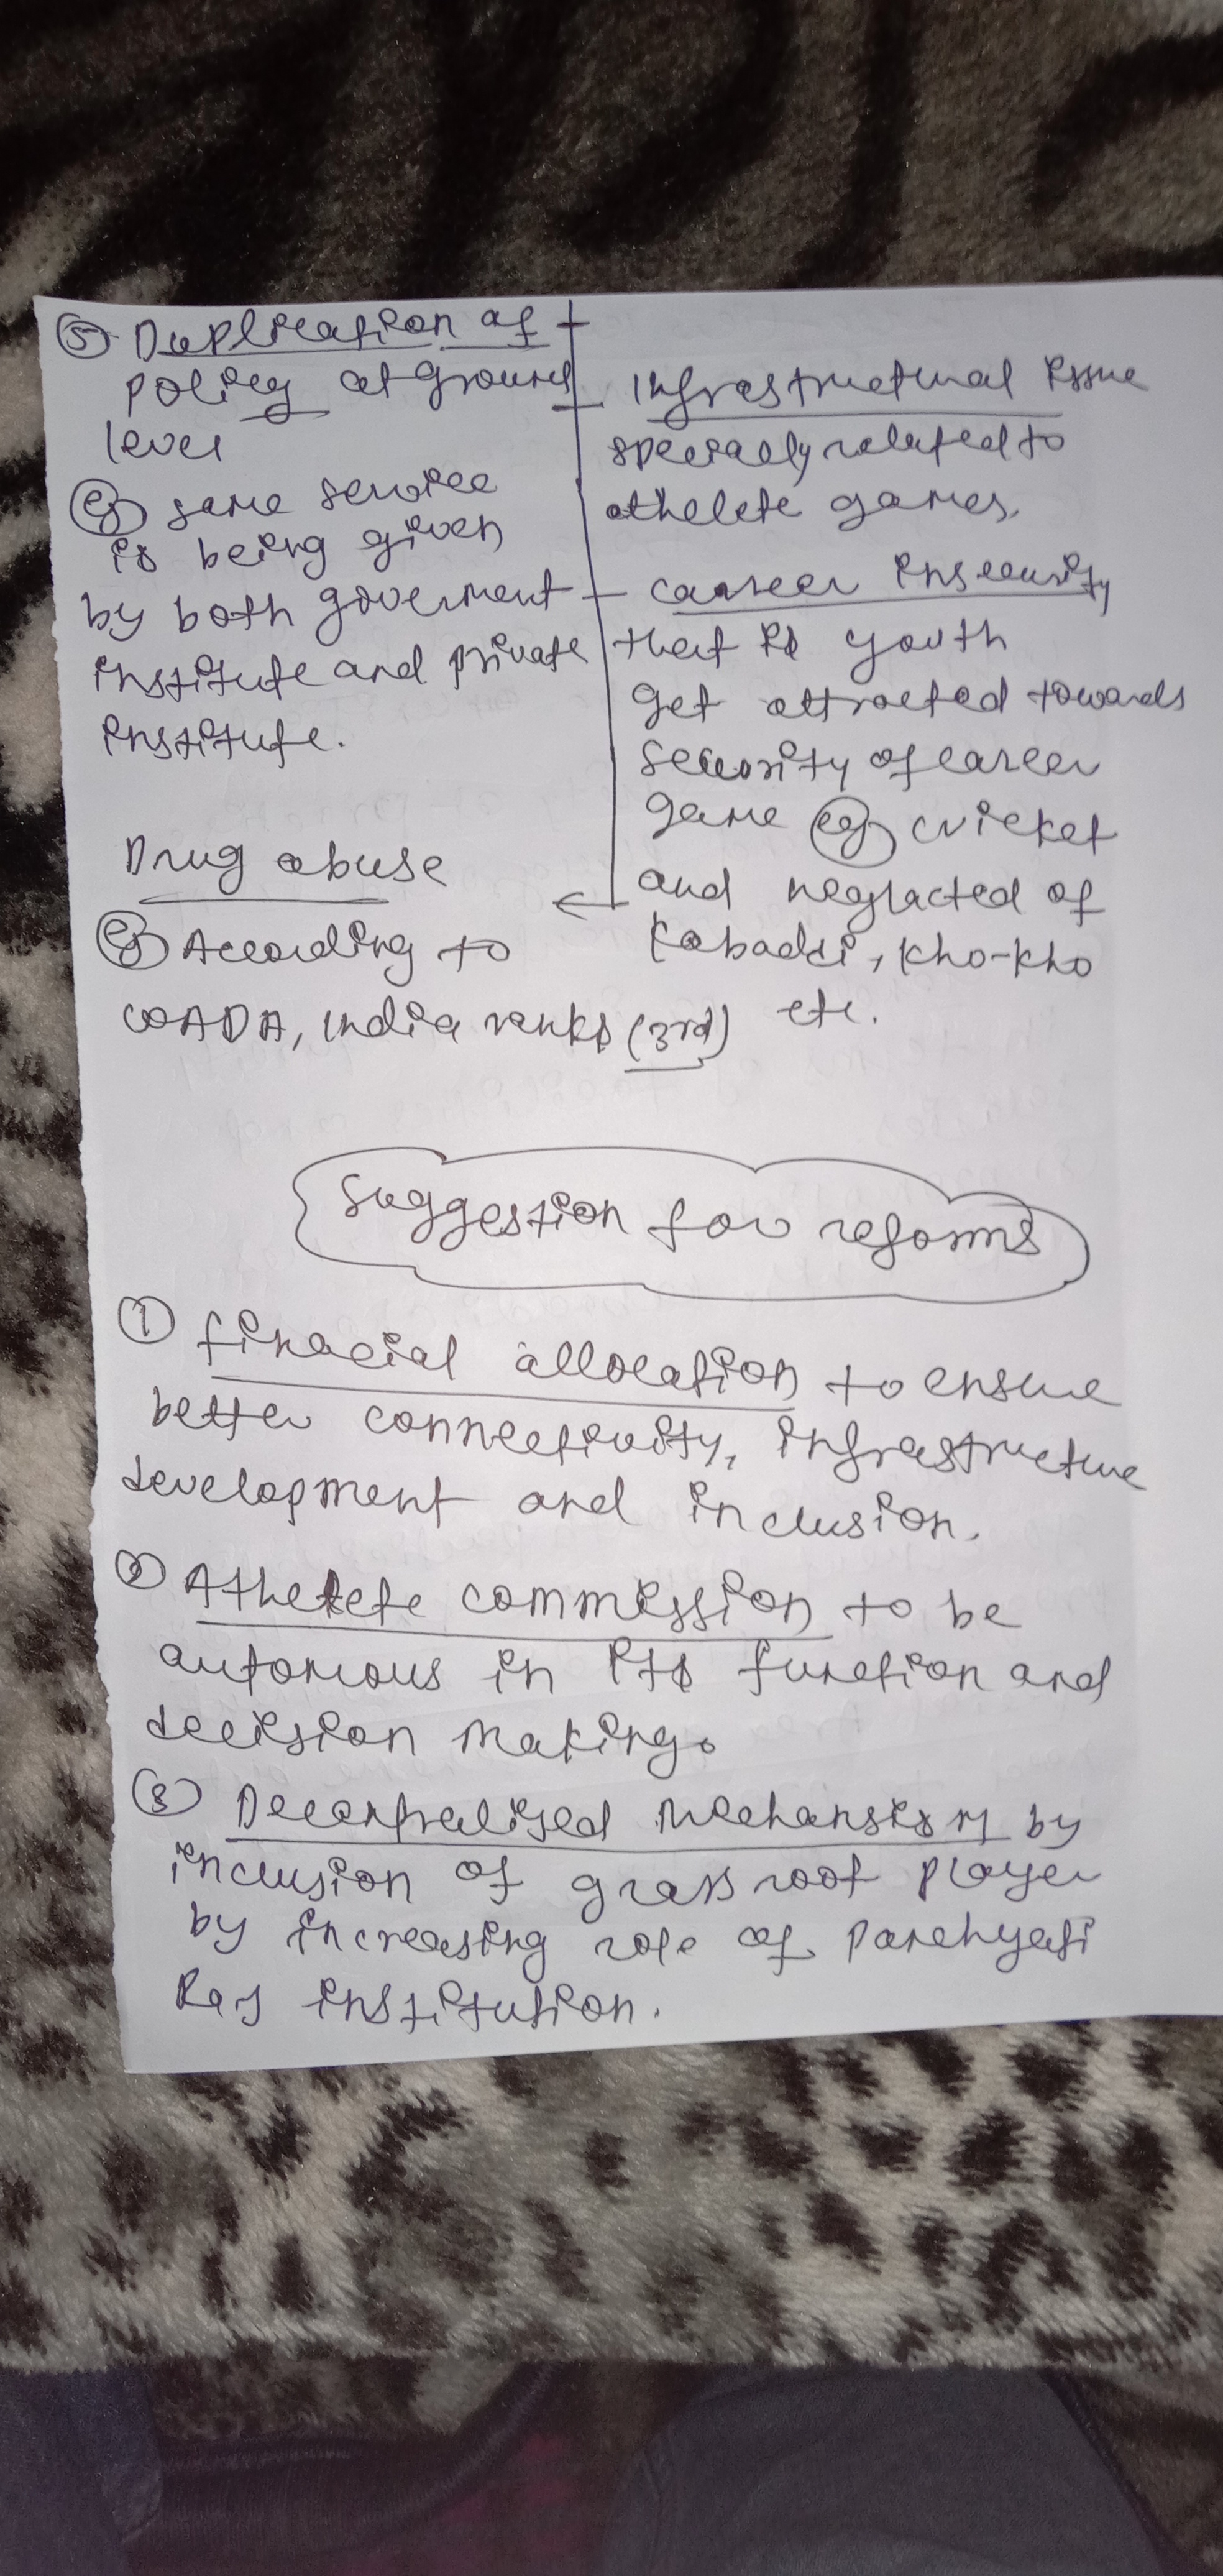 ⑤ Duplication of
policy at ground
level
eg same service
is being given
by both goverment
institute and private
institute.
Drug abuse
eg According to
WADA, India ranks (3rd)
Infrastructural issue
specially related to
athelete games.
career insecurity
that is youth
get attracted towards
security of career
game eg cricket
and neglacted of
Kabaddi, Kho-Kho
etc.
Suggestion for reforms
① finacial allocation to ensure
better connectivity, infrastructure
development and inclusion.
② Athelete commission to be
automous in its function and
decision making.
③ Decentralised mechansism by
inclusion of grass root player
by increasing role of Panchyati
Raj institution.